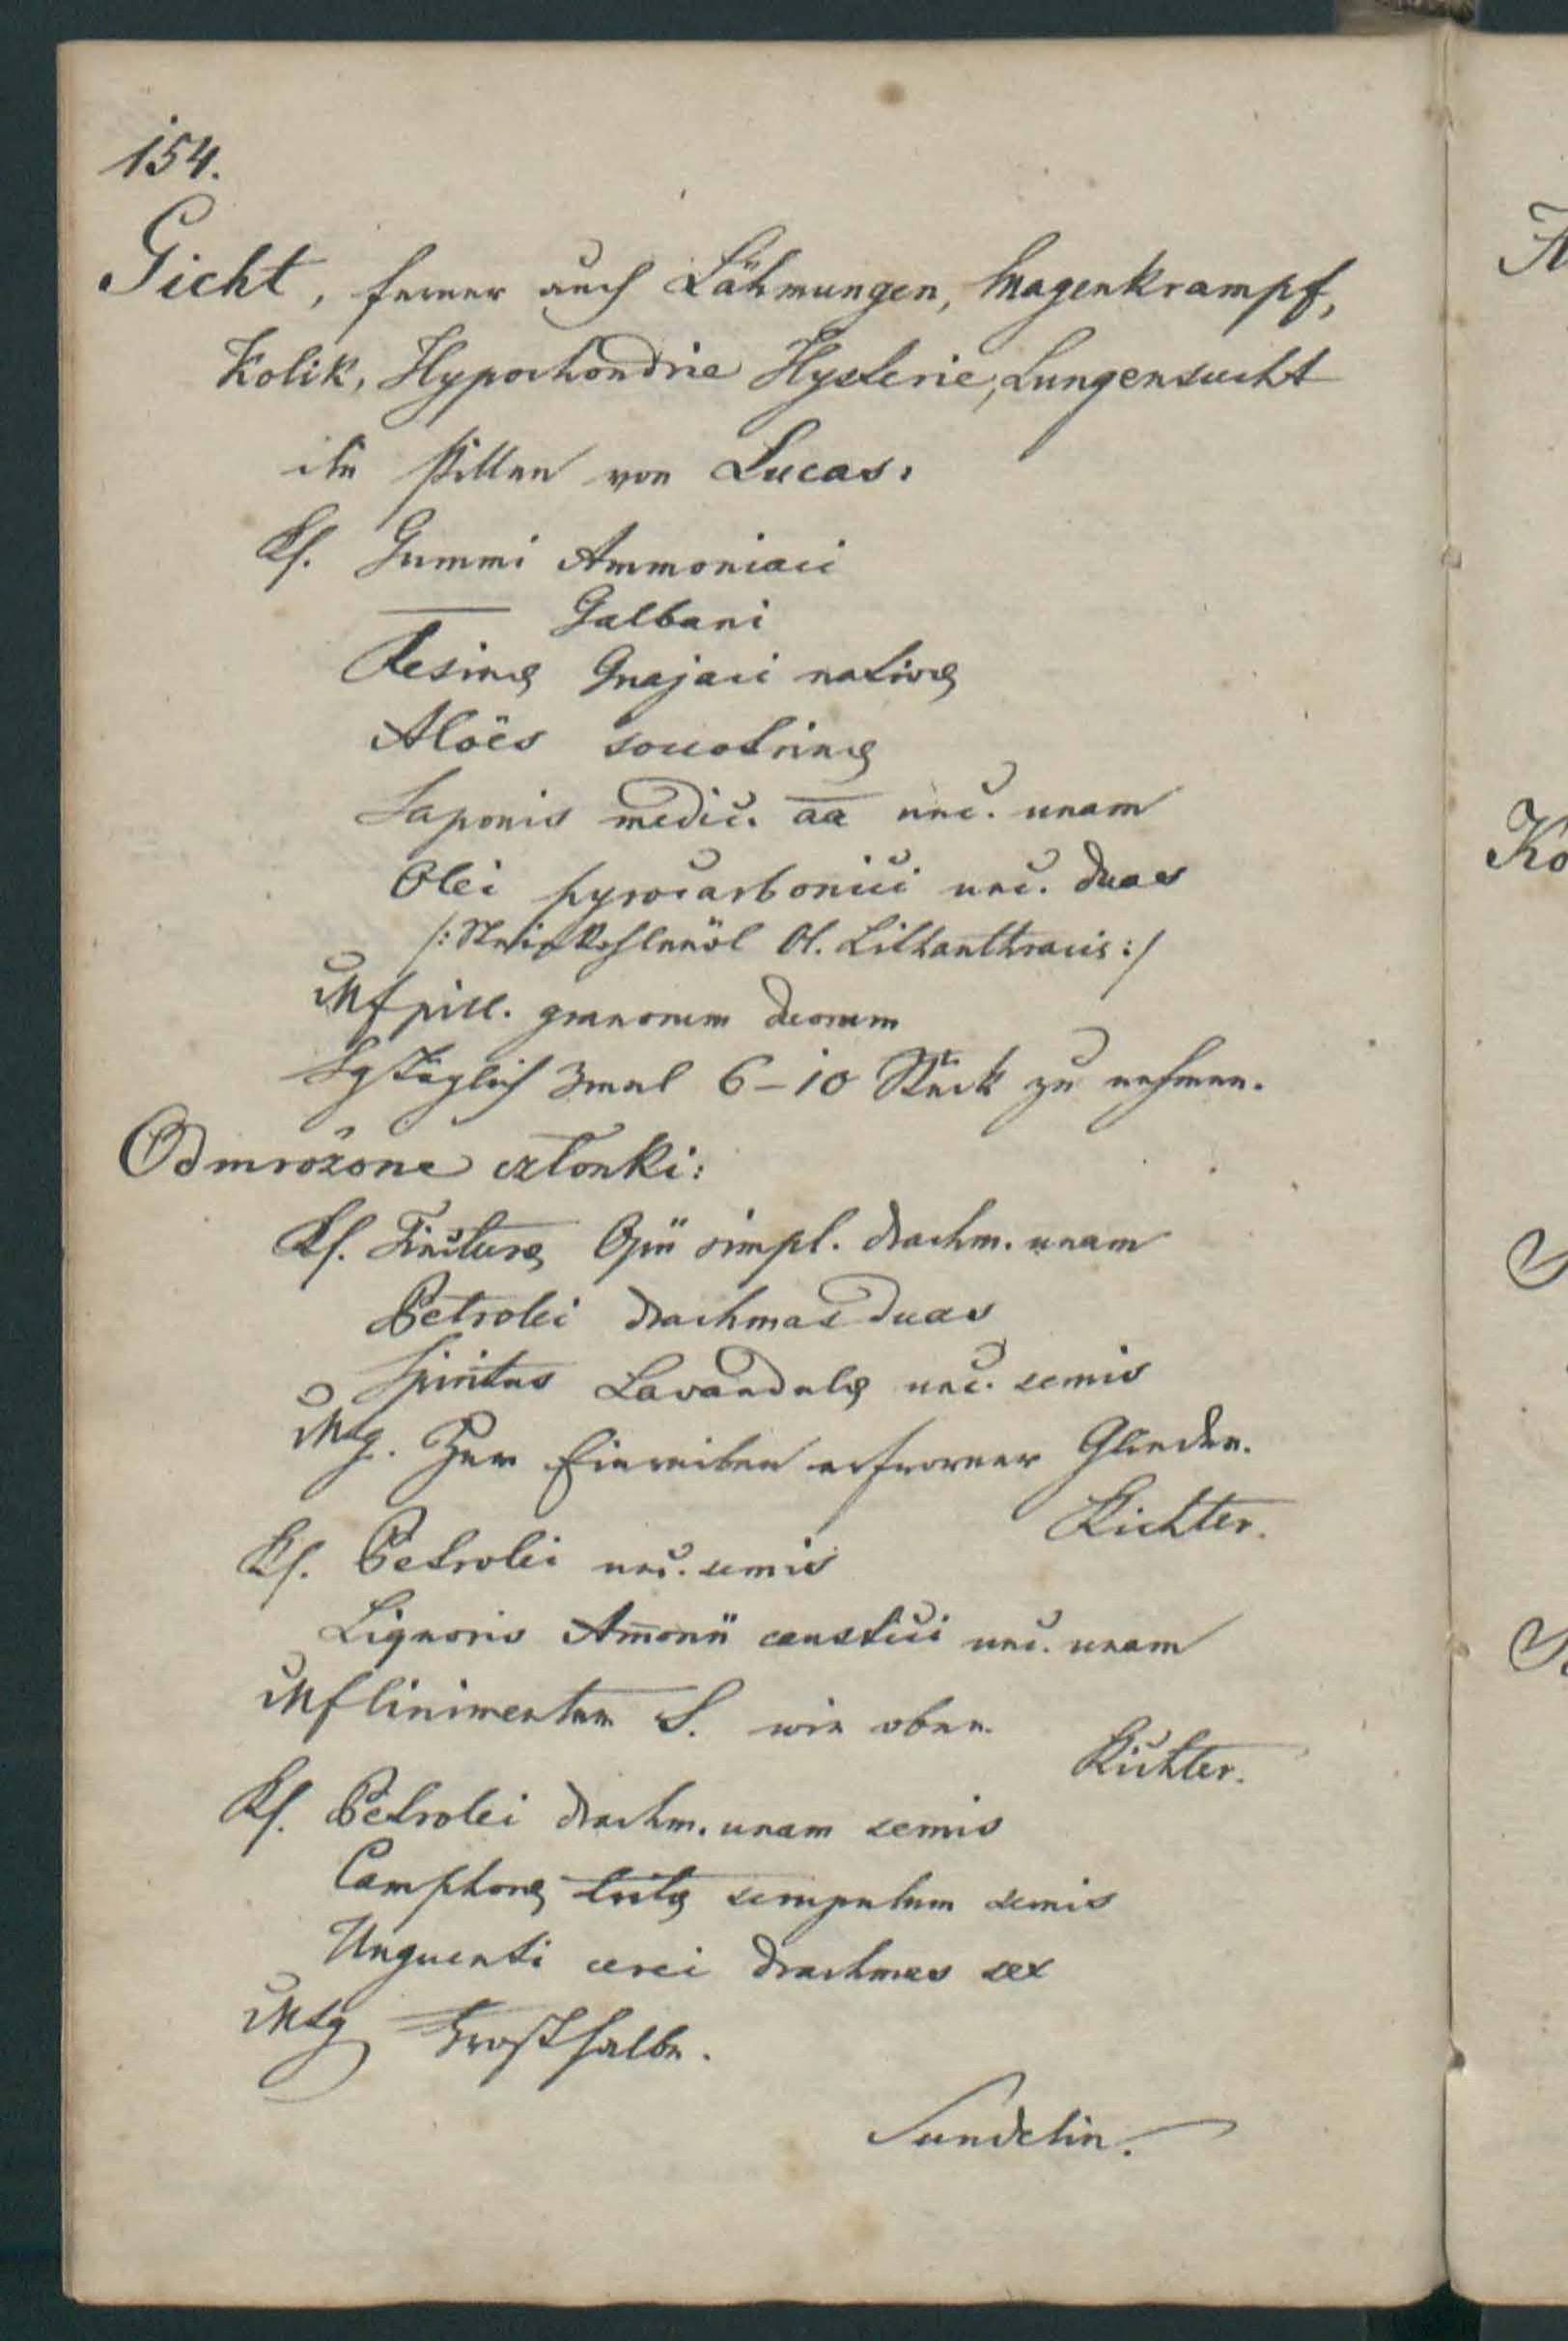 154.
Gicht, ferner auch Lähmungen, Magenkrampf,
Kolik, Hypochondrie Hysterie, Lungensucht
die Pillen von Lucas.
Rp. Gummi Ammoniaci
— Galbani
Resinae Guajaci nativae
Aloës soccotrinae
Saponis medic. aa unc. unam
Olei pyrocarbonici unc. duas
/: Steinkohlenöl Ol. Lithanthracis :/
Mf pill. granorum duorum
Sg täglich 3mal 6–10 Stück zu nehmen.
Odmrożone członki:
Rp. Tincturae Opii simpl. drachm. unam
Petrolei drachmas duas
Spiritus Lavandulae unc. semis
MSg. Zum Einreiben erfrorner Glieder.
Richter.
Rp. Petrolei unc. semis
Liquoris Am̄onii caustici unc. unam
Mf linimentum S. wie oben.
Richter.
Rp. Petrolei drachm. unam semis
Camphorae tritae scrupulum semis
Unguenti cerei drachmas sex
MSg Frostsalbe.
Sundelin.
A
Ko